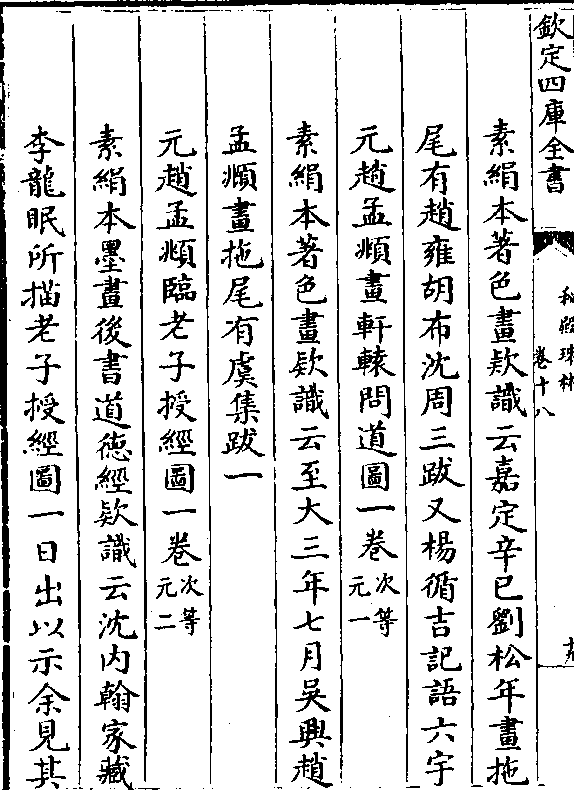 欽定四庫全書
秘殿珠林
卷十八
素絹本著色畫欵識云嘉定辛巳劉松年畫拖
尾有趙雍胡布沈周三跋又楊循吉記語六字
元趙孟頫畫軒轅問道圖一卷次等元一
素絹本著色畫欵識云至大三年七月吳興趙
孟頫畫拖尾有虞集跋一
元趙孟頫臨老子授經圖一卷次等元二
素絹本墨畫後書道徳經欵識云沈内翰家藏
李龍眠所描老子授經圖一日出以示余見其